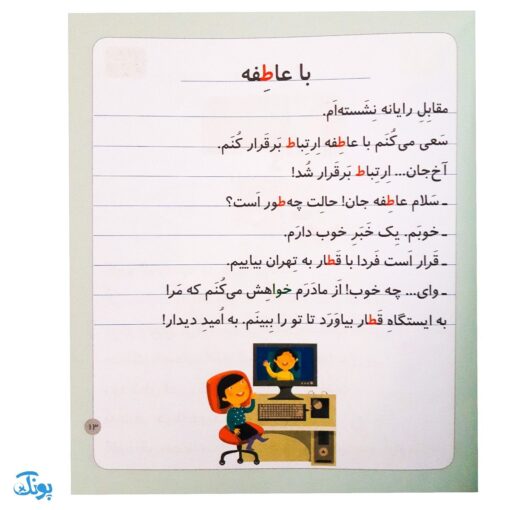 با عاطِفه
مقابِلِ رایانه نِشَسته‌اَم.
سَعی می‌کُنَم با عاطِفه اِرتِباط بَرقَرار کُنَم.
آخ‌جان... اِرتِباط بَرقَرار شُد!
ـ سَلام عاطِفه جان! حالِت چه‌طور اَست؟
ـ خوبَم. یِک خَبَرِ خوب دارَم.
ـ قَرار اَست فَردا با قَطار به تِهران بیاییم.
ـ وای... چه خوب! اَز مادَرَم خواهِش می‌کُنَم که مَرا
به ایستگاهِ قَطار بیاوَرَد تا تو را ببینَم. به اُمیدِ دیدار!
۱۳
پونک